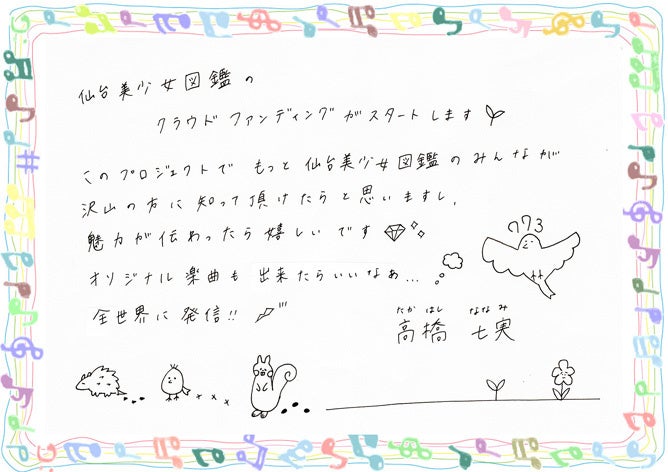 仙台美少女図鑑の
クラウドファンディングがスタートします
このプロジェクトで もっと 仙台美少女図鑑のみんなが
沢山の方に知って頂けたらと思いますし、
魅力が伝わったら嬉しいです
オリジナル楽曲も出来たらいいなぁ...
全世界に発信!!
773
たか はし ななみ
高橋 七実